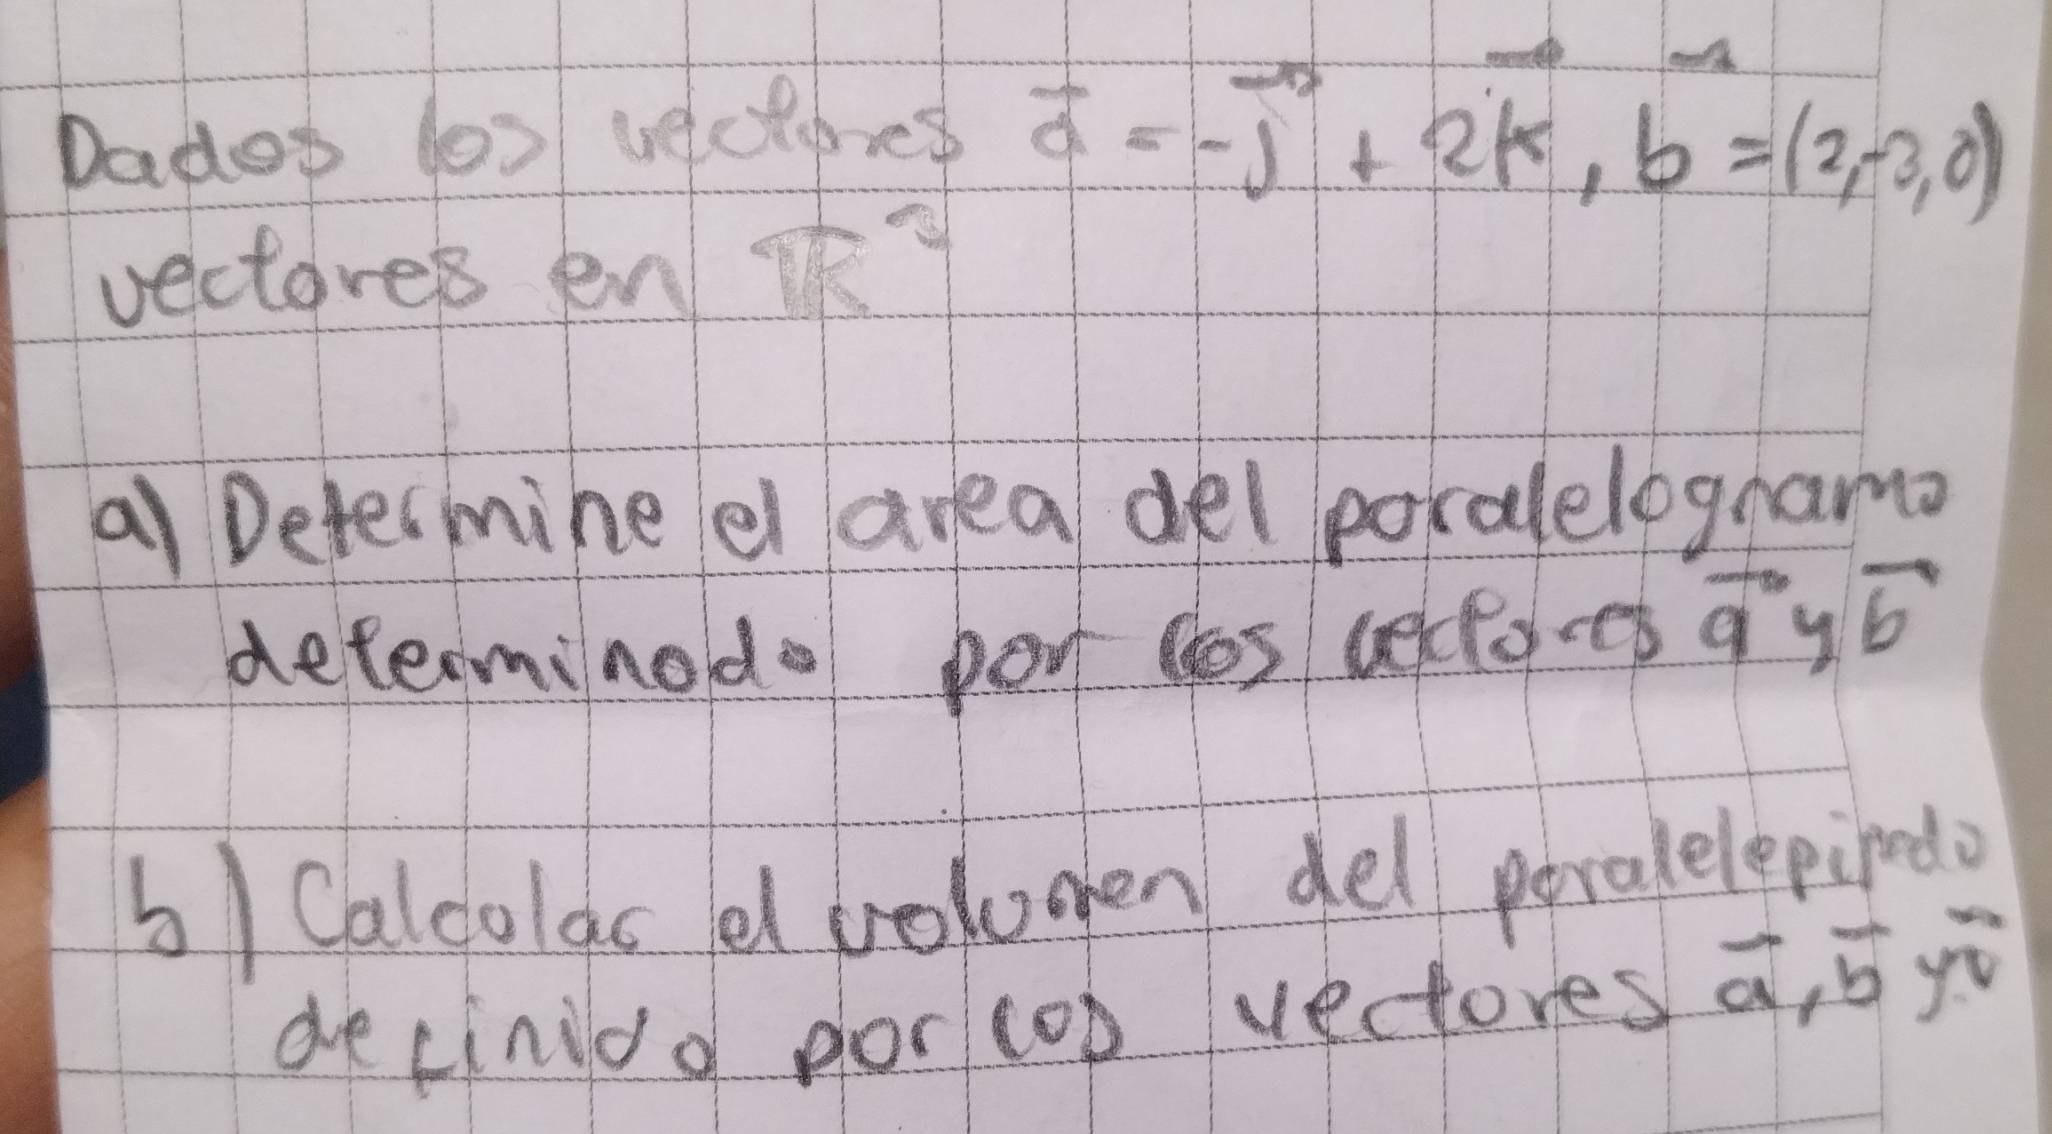 Dados los vectores a⃗ = -j⃗ + 2k⃗, b⃗ = (2,-3,0)
vectores en ℝ³
a) Determine el area del poralelogramo
determinodo por los vectores a⃗ y b⃗
b) Calcolar el volumen del poralelepipedo
definido por los vectores a⃗, b⃗ y